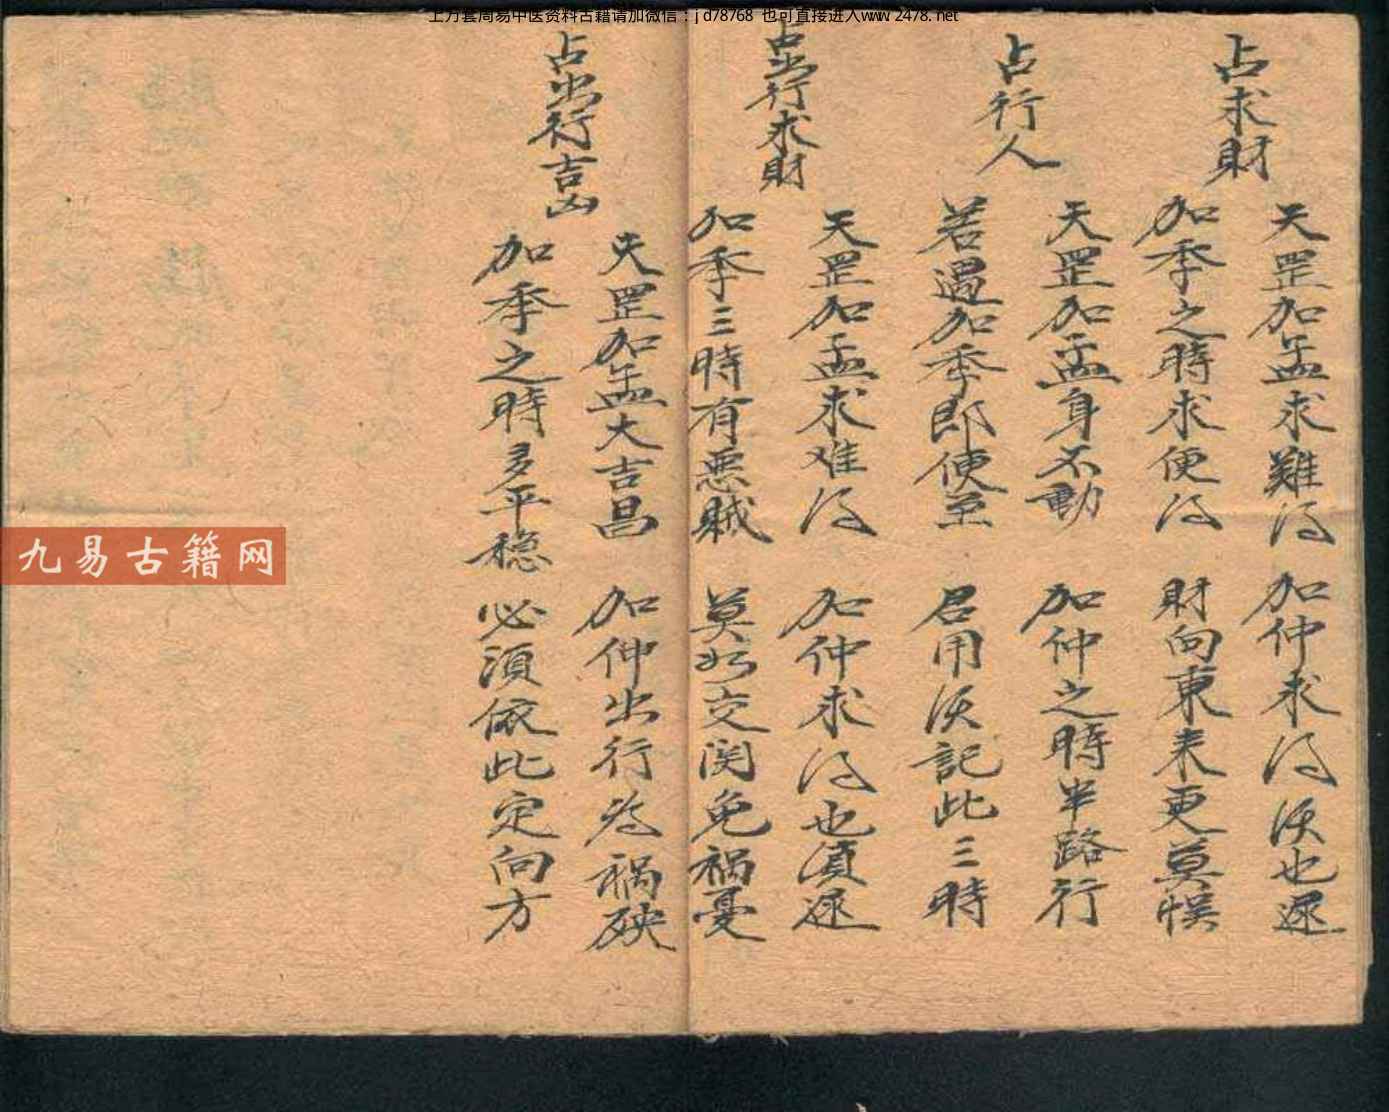 上万套周易中医资料古籍请加微信：jd78768 也可直接进入www.2478.net
占求財
天罡加孟求難得 加仲求得沃也遲
加季之時求便得 財向東来更莫悮
占行人
天罡加孟身不動 加仲之時半路行
若遇加季即便至 君用沃記此三時
占出行求財
天罡加孟求难得 加仲求得也須遲
加季三時有惡賊 莫於交関免禍憂
占出行吉凶
天罡加孟大吉昌 加仲出行為禍殃
加季之時多平穏 必須依此定向方
九易古籍网